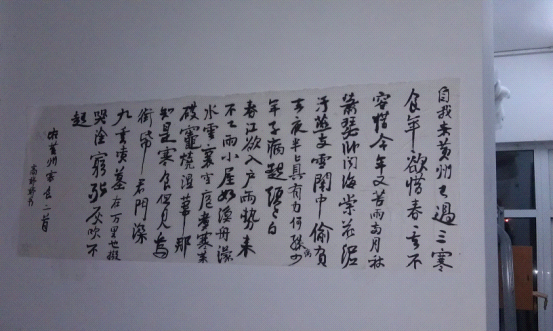 自我来黄州已過三寒
食年欲惜春去不
容惜今年又苦雨兩月秋
蕭瑟卧聞海棠花泥
污燕支雪闇中偷負
去夜半真有力何殊少
年子病起頭已白
春江欲入户雨勢来
不已雨小屋如漁舟濛
水雲裏空庖煮寒菜
破竈燒湿葦那
知是寒食但見烏
銜帋君門深
九重墳墓在万里也擬
哭塗窮死灰吹不
起
黄州寒食二首